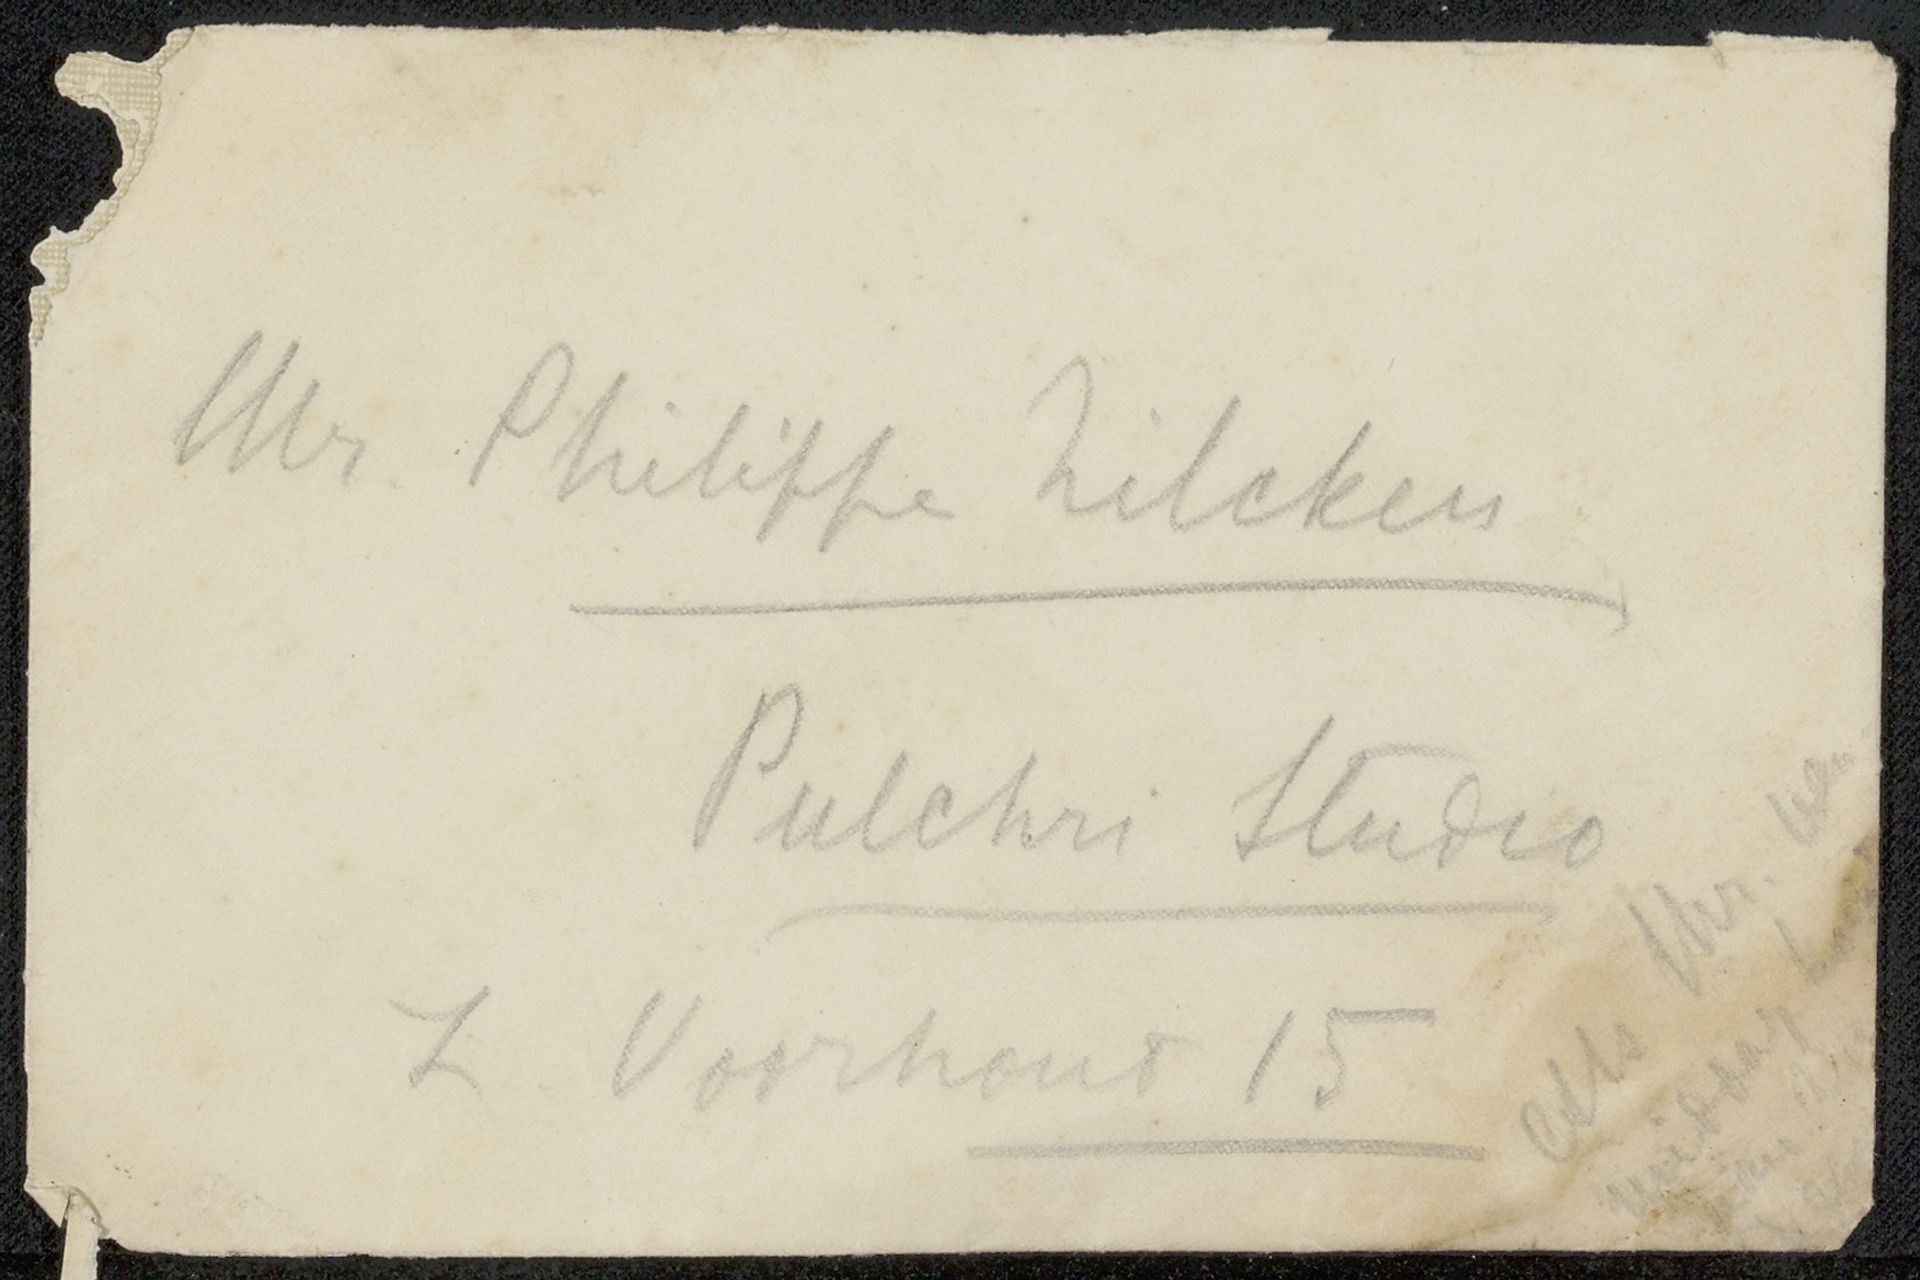 Mr. Philippe Zilcken
Pulchri Studio
L. Voorhout 15
als Mr.
middag
van